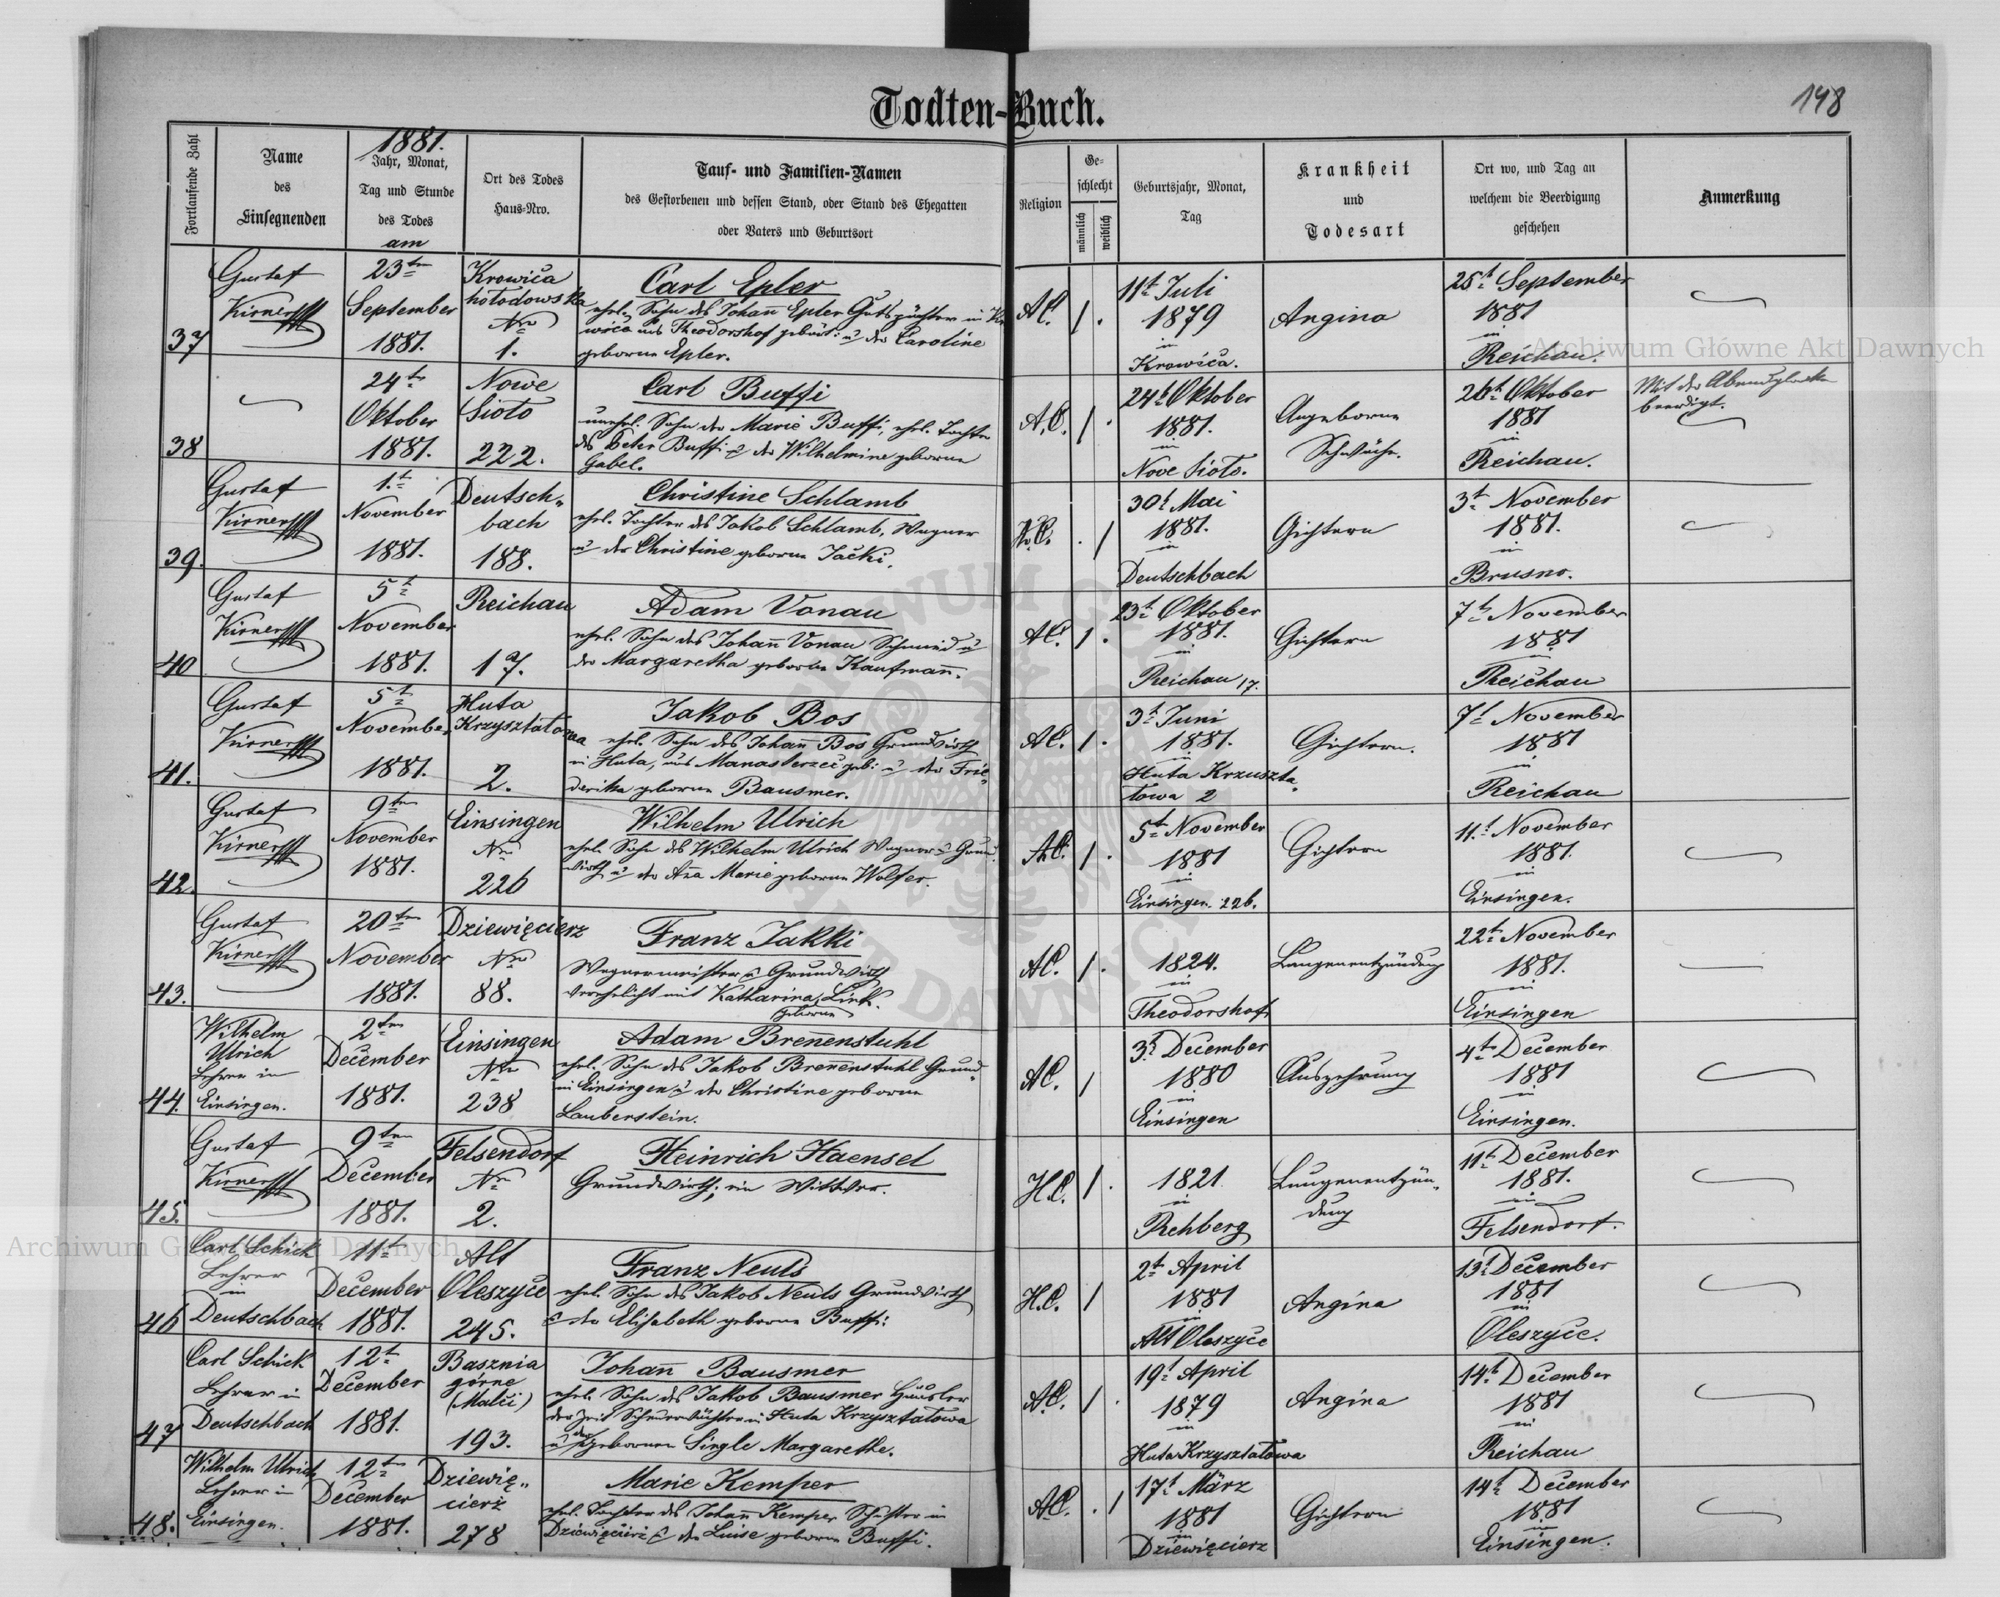 Todten-Buch.
148
Fortlaufende Zahl
Name
des
Einsegnenden
1881.
Jahr, Monat,
Tag und Stunde
des Todes
am
Ort des Todes
Haus-Nro.
Tauf- und Familien-Namen
des Gestorbenen und dessen Stand, oder Stand des Ehegatten
oder Vaters und Geburtsort
Religion
Ge-
schlecht
männlich
weiblich
Geburtsjahr, Monat,
Tag
Krankheit
und
Todesart
Ort wo, und Tag an
welchem die Beerdigung
geschehen
Anmerkung
37
Gustaf
Kirner
23ten
September
1881.
Krowica
hołodowska
Nro
1.
Carl Epler
ehel. Sohn des Johañ Epler Gutspächter in Kro
wica aus Theodorshof gebürt: u der Caroline
geborne Epler.
A.C.
1.
11t Juli
1879
in
Krowica.
Angina
25t September
1881
in
Reichau.
38
24te
Oktober
1881.
Nowe
Sioło
222.
Carl Buffi
unehel. Sohn der Marie Buffi, ehel. Tochter
des Peter Buffi u der Wilhelmine geborne
Gabel.
A.C.
1.
24t Oktober
1881.
in
Nove Sioło.
Angeborne
Schwäche.
26t Oktober
1881
in
Reichau.
Mit der Abendglocke
beerdigt.
39.
Gustaf
Kirner
1.t
November
1881.
Deutsch-
bach
188.
Christine Schlamb
ehel. Tochter des Jakob Schlamb, Wagner
u der Christine geborne Jacki.
. 1
30t Mai
1881.
in
Deutschbach
Gichtern
3t November
1881.
in
Brusno.
40
Gustaf
Kirner
5t
November
1881.
Reichau
17.
Adam Vonau
ehel. Sohn des Johañ Vonau Schmied u
der Margaretha geborne Kaufmañ.
A.C.
1.
23t Oktober
1881.
in
Reichau 17.
Gichtern
7t November
1881
in
Reichau
41.
Gustaf
Kirner
5t
November
1881.
Huta
Krzyształowa
2.
Jakob Bos
ehel. Sohn des Johañ Bos Grundwirth
in Huta, aus Manasterzec geb: u der Frie-
derika geborne Bausmer.
A.C.
1.
3t Juni
1881.
in
Huta Krzuszta-
łowa 2
Gichtern.
7t November
1881
in
Reichau
42
Gustaf
Kirner
9ten
November
1881.
Einsingen
Nro
226
Wilhelm Ulrich
ehel. Sohn des Wilhelm Ulrich Wagner u Grund-
wirth u der Aña Marie geborne Wolfer.
A.C.
1.
5t November
1881
in
Einsingen 226.
Gichtern
11.t November
1881.
in
Einsingen.
43.
Gustaf
Kirner
20ten
November
1881.
Dziewięcierz
Nro
88.
Franz Jakki
Wagnermeister u Grundwirth
verehelicht mit Katharina Link.
geborne
A.C.
1.
1824.
in
Theodorshof
Lungenentzündung
22t November
1881.
in
Einsingen
44.
Wilhelm
Ulrich
Lehrer in
Einsingen.
2ten
December
1881.
Einsingen
Nro
238
Adam Breñenstuhl
ehel. Sohn des Jakob Breñenstuhl Grund-
in Einsingen u der Christine geborne
Lauberstein.
A.C.
1
3t December
1880
in
Einsingen
Auszehrung
4t December
1881
in
Einsingen.
45.
Gustaf
Kirner
9ten
December
1881.
Felsendorf
Nro
2.
Heinrich Haensel
Grundwirth; ein Wittwer.
H.C.
1.
1821
in
Rehberg
Lungenentzün-
dung
11t December
1881.
in
Felsendorf.
46
Carl Schick
Lehrer
in
Deutschbach
11te
December
1881.
Alt
Oleszyce
245.
Franz Neuls
ehel. Sohn des Jakob Neuls Grundwirth
u der Elisabeth geborne Buffi.
H.C.
1
2t April
1881
in
Alt Oleszyce
Angina
13t December
1881
in
Oleszyce.
47
Carl Schick
Lehrer in
Deutschbach
12t
December
1881.
Basznia
górne
(Malci)
193.
Johañ Bausmer
ehel. Sohn des Jakob Bausmer Häusler
in Huta Krzyształowa
u der gebornen Single Margarethe.
A.C.
1.
19t April
1879
in
Huta Krzyształowa
Angina
14t December
1881
in
Reichau
48.
Wilhelm Ulrich
Lehrer in
Einsingen.
12te
December
1881.
Dziewię-
cierz
278
Marie Kemper
ehel. Tochter des Johañ Kemper Schuster in
Dziewięcierz u der Luise geborne Buffi.
A.C.
. 1
17t März
1881
in
Dziewięcierz
Gichtern
14t December
1881
in
Einsingen.
Archiwum Główne Akt Dawnych
Archiwum Główne Akt Dawnych